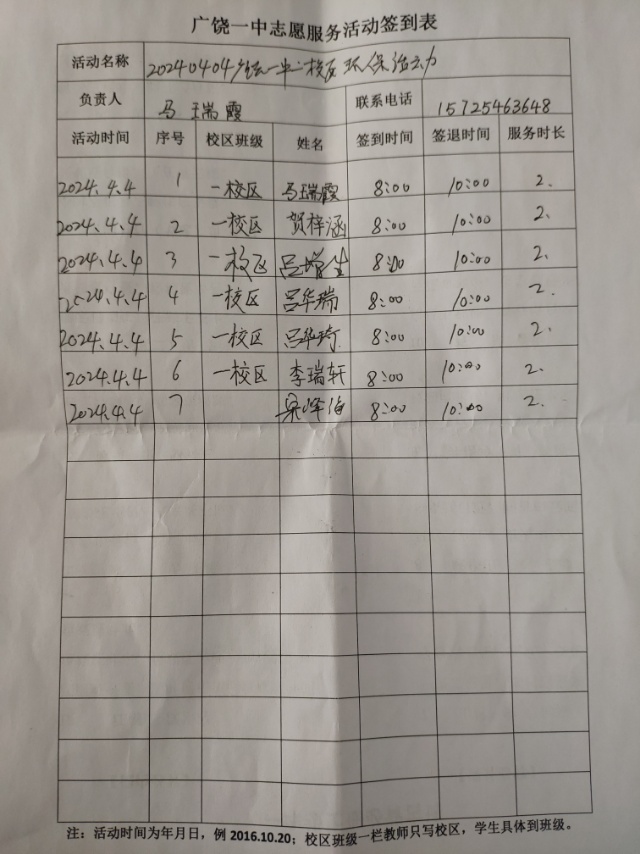 广饶一中志愿服务活动签到表
活动名称 20240404广饶一中一校区环保活动
负责人 马瑞霞 联系电话 15725463648
活动时间 序号 校区班级 姓名 签到时间 签退时间 服务时长
2024.4.4 1 一校区 马瑞霞 8:00 10:00 2.
2024.4.4 2 一校区 贺梓涵 8:00 10:00 2.
2024.4.4 3 一校区 吕增生 8:00 10:00 2.
2024.4.4 4 一校区 吕华瑞 8:00 10:00 2.
2024.4.4 5 一校区 吕华琦 8:00 10:00 2.
2024.4.4 6 一校区 李瑞轩 8:00 10:00 2.
2024.4.4 7 8:00 10:00 2.
注：活动时间为年月日，例 2016.10.20；校区班级一栏教师只写校区，学生具体到班级。